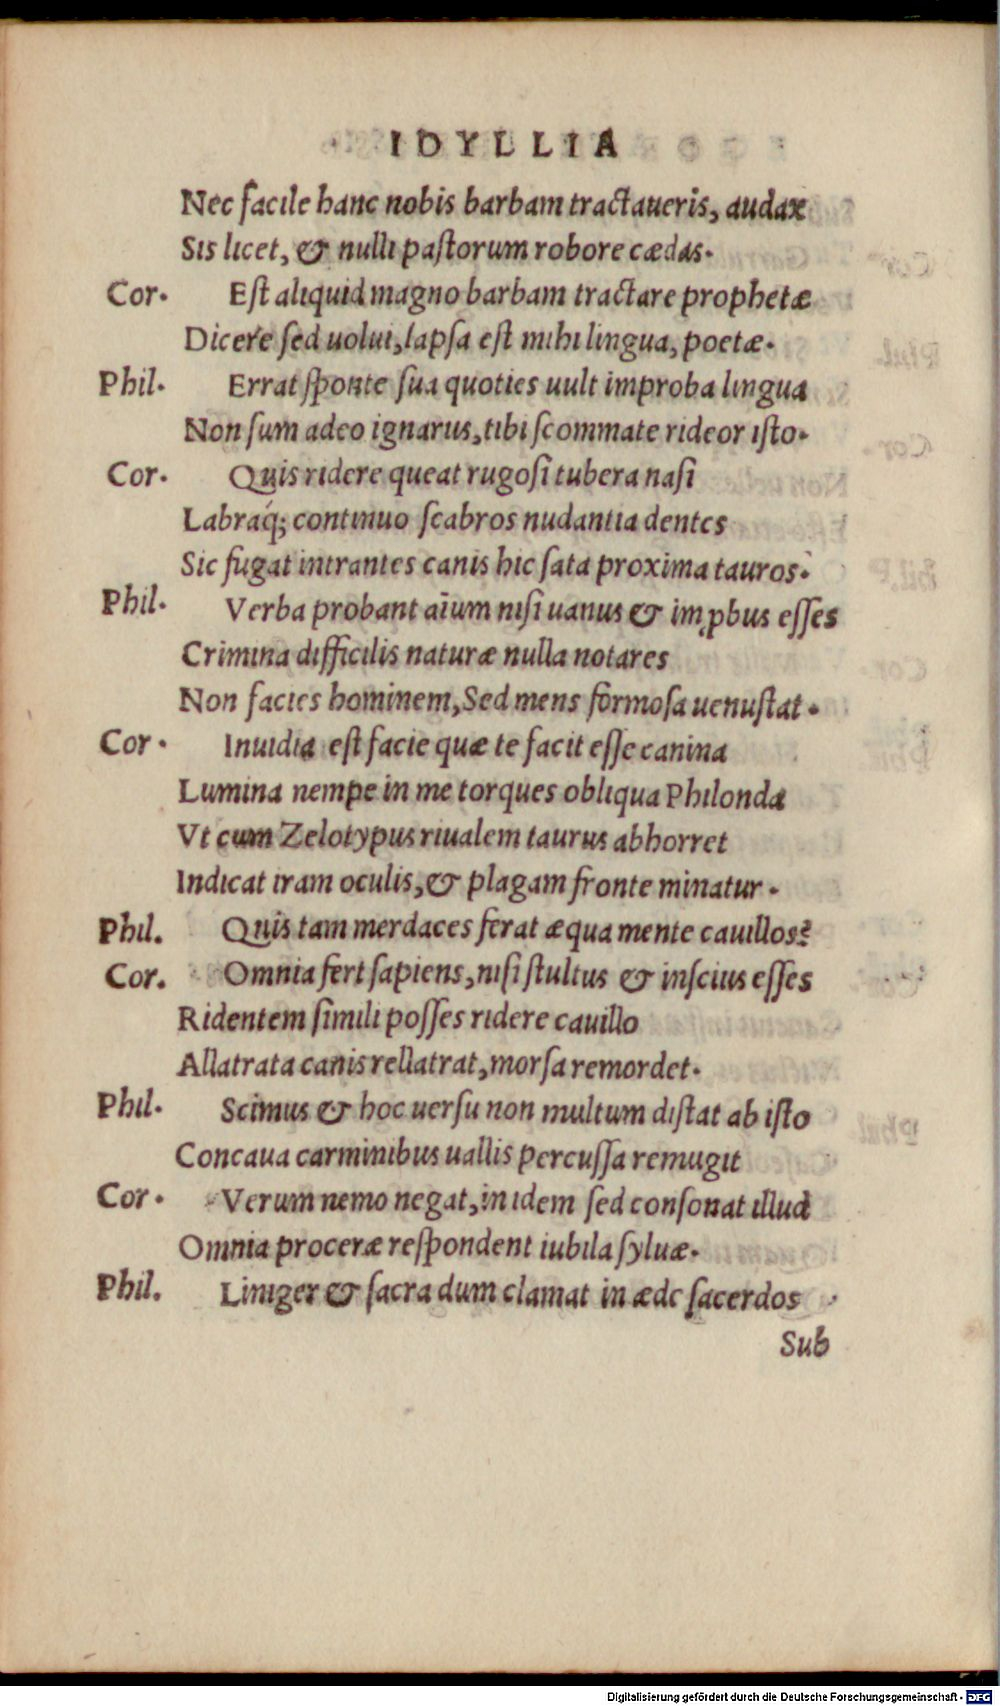 IDYLLIA
Nec facile hanc nobis barbam tractaueris, audax
Sis licet, & nulli pastorum robore cædas.
Cor. Est aliquid magno barbam tractare prophetæ
Dicere sed uolui, lapsa est mihi lingua, poetæ.
Phil. Errat sponte sua quoties uult improba lingua
Non sum adeo ignarus, tibi scommate rideor isto.
Cor. Quis ridere queat rugosi tubera nasi
Labraq́; continuo scabros nudantia dentes
Sic fugat intrantes canis hic sata proxima tauros.
Phil. Verba probant aīum nisi uanus & imꝓbus esses
Crimina difficilis naturæ nulla notares
Non facies hominem, Sed mens formosa uenustat.
Cor. Inuidia est facie quæ te facit esse canina
Lumina nempe in me torques obliqua Philonda
Vt cum Zelotypus riualem taurus abhorret
Indicat iram oculis, & plagam fronte minatur.
Phil. Quis tam merdaces ferat æqua mente cauillos?
Cor. Omnia fert sapiens, nisi stultus & inscius esses
Ridentem simili posses ridere cauillo
Allatrata canis rellatrat, morsa remordet.
Phil. Scimus & hoc uersu non multum distat ab isto
Concaua carminibus uallis percussa remugit
Cor. Verum nemo negat, in idem sed consonat illud
Omnia proceræ respondent iubila syluæ.
Phil. Liniger & sacra dum clamat in æde sacerdos
Sub
Digitalisierung gefördert durch die Deutsche Forschungsgemeinschaft - DFG